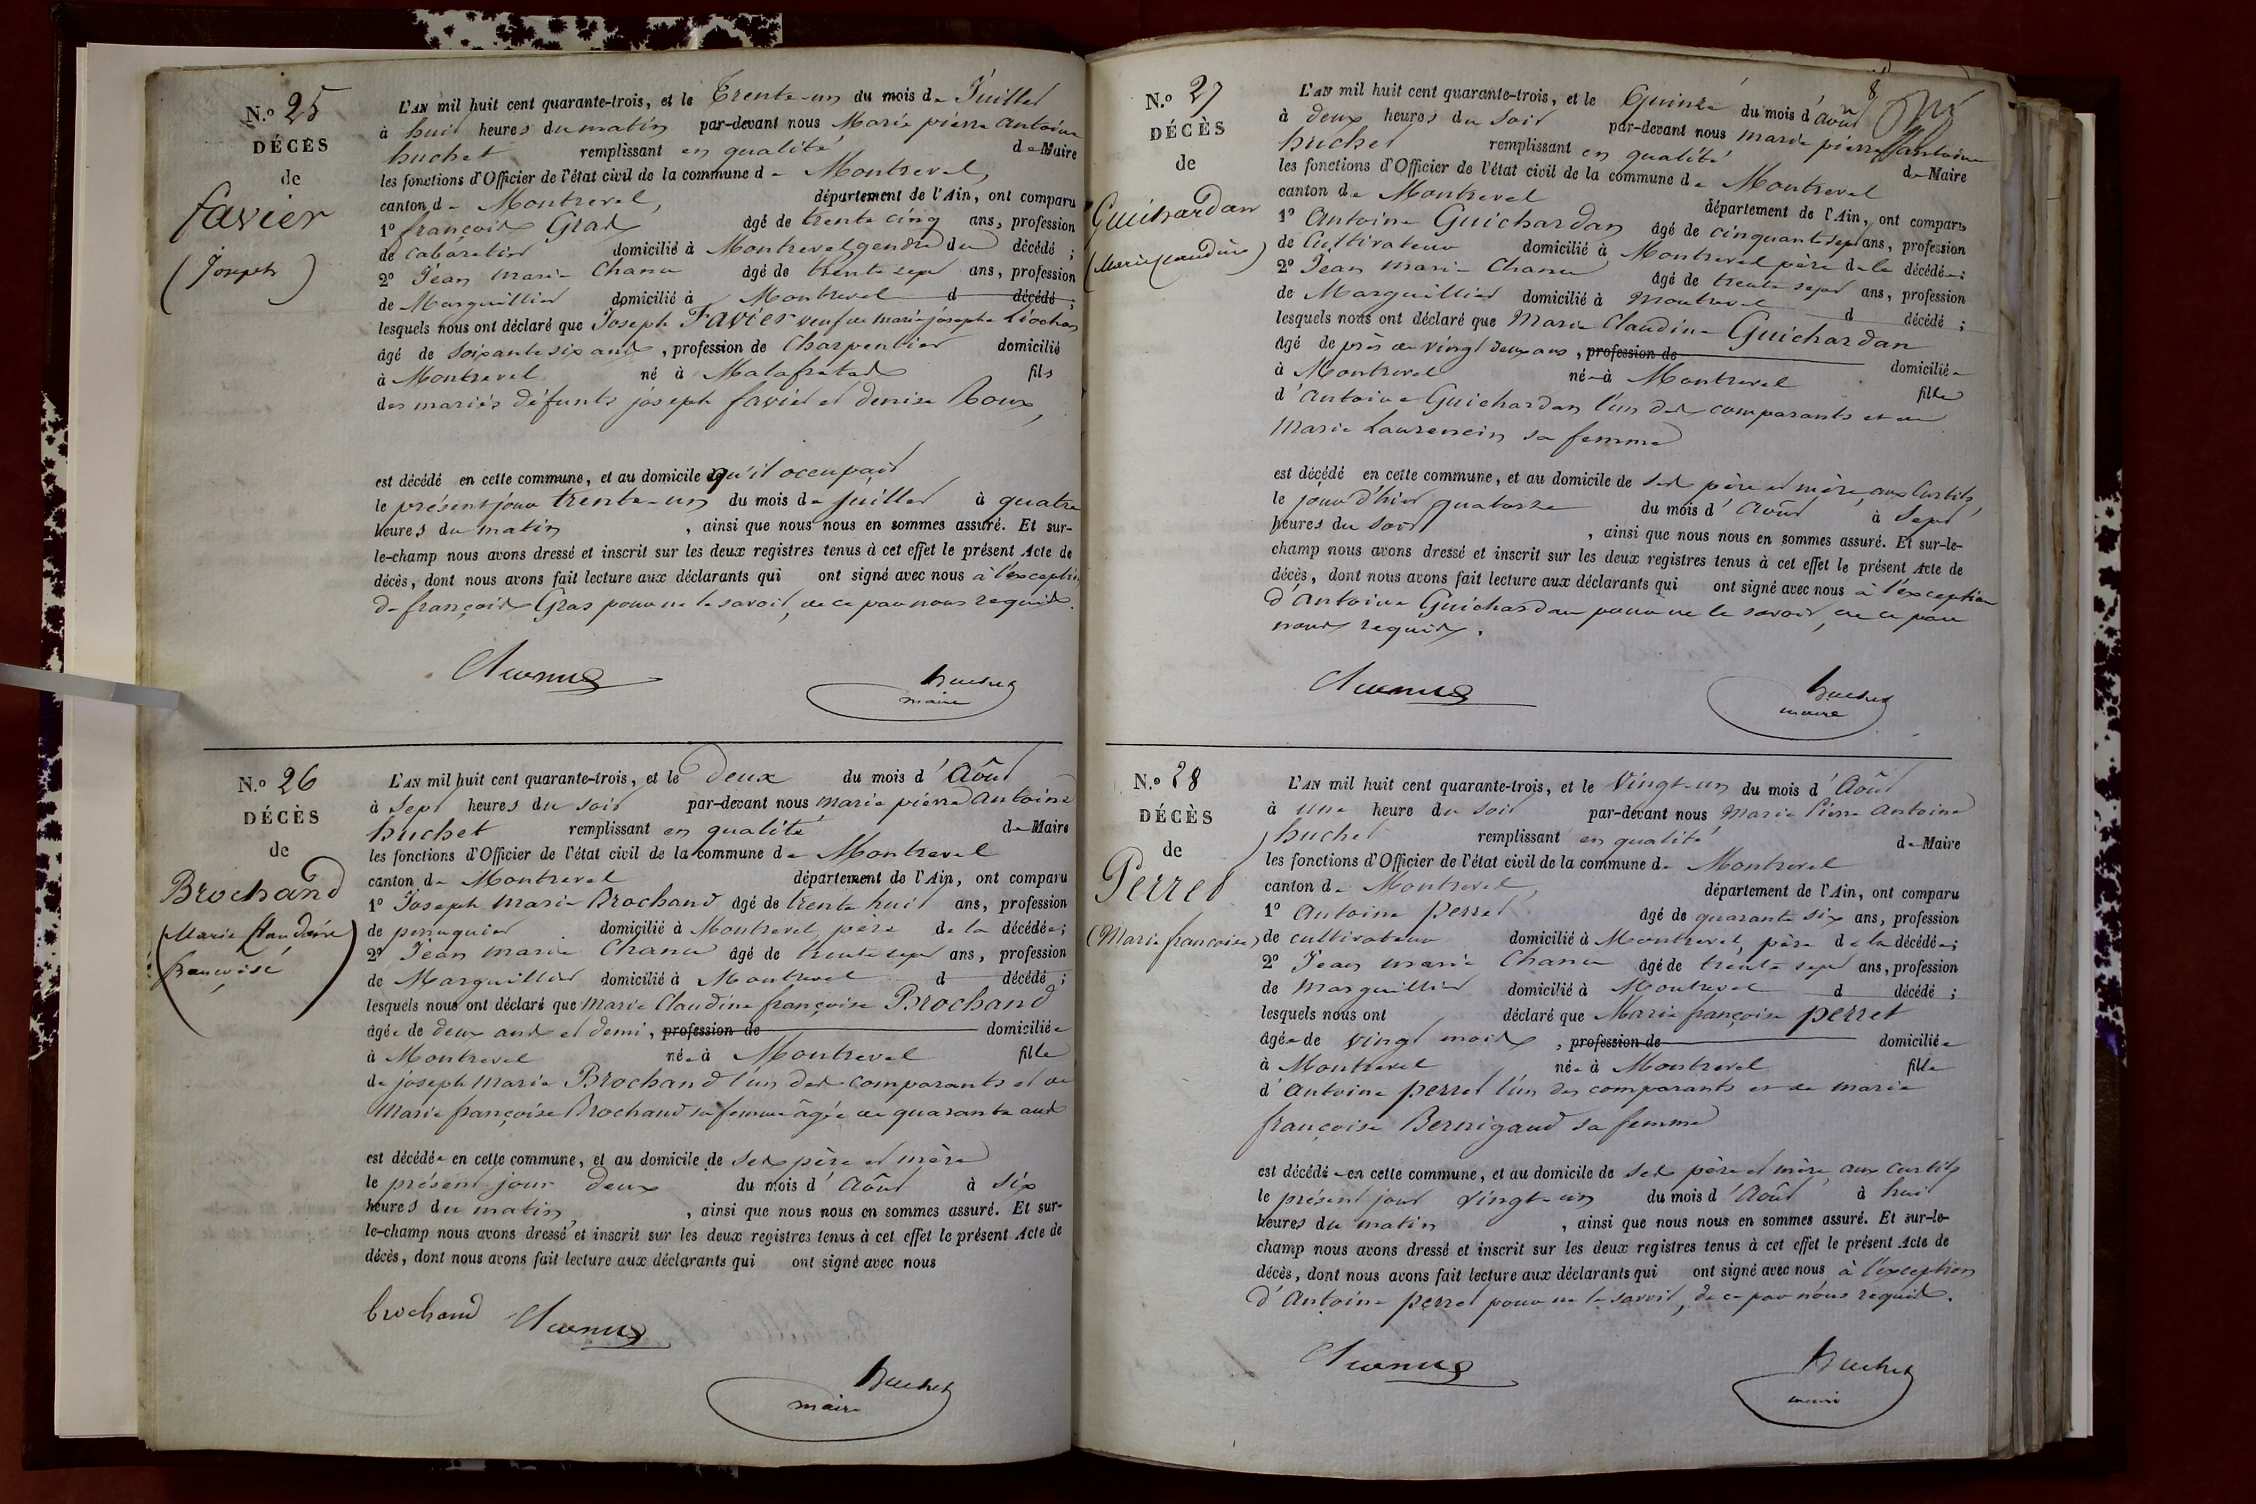 N.o 25
DÉCÈS
de
favier
(Joseph)
L'AN mil huit cent quarante-trois, et le Trente-un du mois de Juillet
à huit heures du matin par-devant nous Marie pierre antoine
huchet remplissant en qualité de Maire
les fonctions d'Officier de l'état civil de la commune de Montrevel,
canton de Montrevel, département de l'Ain, ont comparu
1o françois Gras âgé de trente cinq ans, profession
de cabaretier domicilié à Montrevel gendre du décédé ;
2o Jean marie Chanu âgé de trente sept ans, profession
de Marguillier domicilié à Montrevel d décédé ;
lesquels nous ont déclaré que Joseph Favier veuf de marie josephe Liochon
âgé de soixante six ans, profession de Charpentier domicilié
à Montrevel né à Malafretaz fils
des mariés défunts joseph favier et denise Roux,
est décédé en cette commune, et au domicile qu'il occupait
le présent jour trente-un du mois de juillet à quatre
heures du matin, ainsi que nous nous en sommes assuré. Et sur-
le-champ nous avons dressé et inscrit sur les deux registres tenus à cet effet le présent Acte de
décès, dont nous avons fait lecture aux déclarants qui ont signé avec nous à l'exception
de françois Gras pour ne le savoir, de ce par nous requis.
Chanu
huchet
maire
N.o 26
DÉCÈS
de
Brochand
(Marie Claudine
françoise)
L'AN mil huit cent quarante-trois, et le Deux du mois d'Août
à sept heures du soir par-devant nous marie pierre antoine
huchet remplissant en qualité de Maire
les fonctions d'Officier de l'état civil de la commune de Montrevel
canton de Montrevel département de l'Ain, ont comparu
1o Joseph Marie Brochand âgé de trente huit ans, profession
de perruquier domicilié à Montrevel, père de la décédée ;
2o Jean marie Chanu âgé de trente sept ans, profession
de Marguillier domicilié à Montrevel d décédé ;
lesquels nous ont déclaré que Marie Claudine françoise Brochand
âgée de deux ans et demi, profession de domiciliée
à Montrevel née à Montrevel fille
de joseph Marie Brochand l'un des comparants et de
Marie françoise Brochand sa femme âgée de quarante ans
est décédée en cette commune, et au domicile de ses père et mère
le présent jour deux du mois d'Août à six
heures du matin, ainsi que nous nous en sommes assuré. Et sur-
le-champ nous avons dressé et inscrit sur les deux registres tenus à cet effet le présent Acte de
décès, dont nous avons fait lecture aux déclarants qui ont signé avec nous
brochand Chanu
huchet
maire
8
N.o 27
DÉCÈS
de
Guichardan
(Marie Claudine)
L'AN mil huit cent quarante-trois, et le Quinze du mois d'Août
à deux heures du soir par-devant nous marie pierre antoine
huchet remplissant en qualité de Maire
les fonctions d'Officier de l'état civil de la commune de Montrevel
canton de Montrevel département de l'Ain, ont comparu
1o Antoine Guichardan âgé de cinquante sept ans, profession
de Cultivateur domicilié à Montrevel père de la décédée ;
2o Jean marie Chanu âgé de trente sept ans, profession
de Marguillier domicilié à Montrevel d décédé ;
lesquels nous ont déclaré que Marie Claudine Guichardan
âgé de près de vingt deux ans, profession de domiciliée
à Montrevel née à Montrevel fille
d'antoine Guichardan l'un des comparants et de
Marie Laurencin sa femme
est décédé en cette commune, et au domicile de ses père et mère, aux Curtils,
le jour d'hier quatorze du mois d'Août à sept
heures du soir, ainsi que nous nous en sommes assuré. Et sur-le-
champ nous avons dressé et inscrit sur les deux registres tenus à cet effet le présent Acte de
décès, dont nous avons fait lecture aux déclarants qui ont signé avec nous à l'exception
d'Antoine Guichardan pour ne le savoir, de ce par
nous requis.
Chanu
huchet
maire
N.o 28
DÉCÈS
de
Perret
(Marie françoise)
L'AN mil huit cent quarante-trois, et le Vingt-un du mois d'Août
à une heure du soir par-devant nous Marie Pierre Antoine
huchet remplissant en qualité de Maire
les fonctions d'Officier de l'état civil de la commune de Montrevel
canton de Montrevel, département de l'Ain, ont comparu
1o Antoine perret âgé de quarante six ans, profession
de cultivateur domicilié à Montrevel, père de la décédée ;
2o Jean marie Chanu âgé de trente sept ans, profession
de Marguillier domicilié à Montrevel d décédé ;
lesquels nous ont déclaré que Marie françoise perret
âgée de vingt mois, profession de domiciliée
à Montrevel née à Montrevel fille
d'antoine perret l'un des comparants et de marie
françoise Bernigaud sa femme
est décédée en cette commune, et au domicile de ses père et mère, aux Curtils
le présent jour vingt-un du mois d'Août à huit
heures du matin, ainsi que nous nous en sommes assuré. Et sur-le-
champ nous avons dressé et inscrit sur les deux registres tenus à cet effet le présent Acte de
décès, dont nous avons fait lecture aux déclarants qui ont signé avec nous, à l'exception
d'Antoine perret pour ne le savoir, de ce par nous requis.
Chanu
huchet
maire